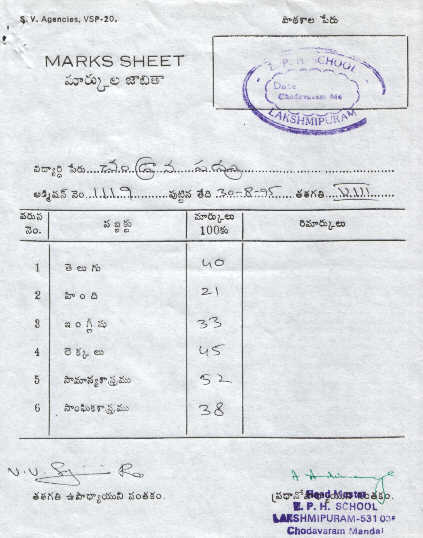 S. V. Agencies, VSP-20.
పాఠశాల పేరు
MARKS SHEET
మార్కుల జాబితా
Z. P. H. SCHOOL
Date
Chodavaram Md
LAKSHMIPURAM
విద్యార్థి పేరు
అడ్మిషన్ నెం. 1119 పుట్టిన తేది 30-8-95 తరగతి VIII
వరుస నెం. సబ్జెక్టు మార్కులు 100కు రిమార్కులు
1 తెలుగు 40
2 హింది 21
3 ఇంగ్లీషు 33
4 లెక్కలు 45
5 సామాన్యశాస్త్రము 52
6 సాంఘికశాస్త్రము 38
తరగతి ఉపాధ్యాయుని సంతకం. ప్రధానోపాధ్యాయుని సంతకం.
Head Master
Z. P. H. SCHOOL
LAKSHMIPURAM-531 036
Chodavaram Mandal